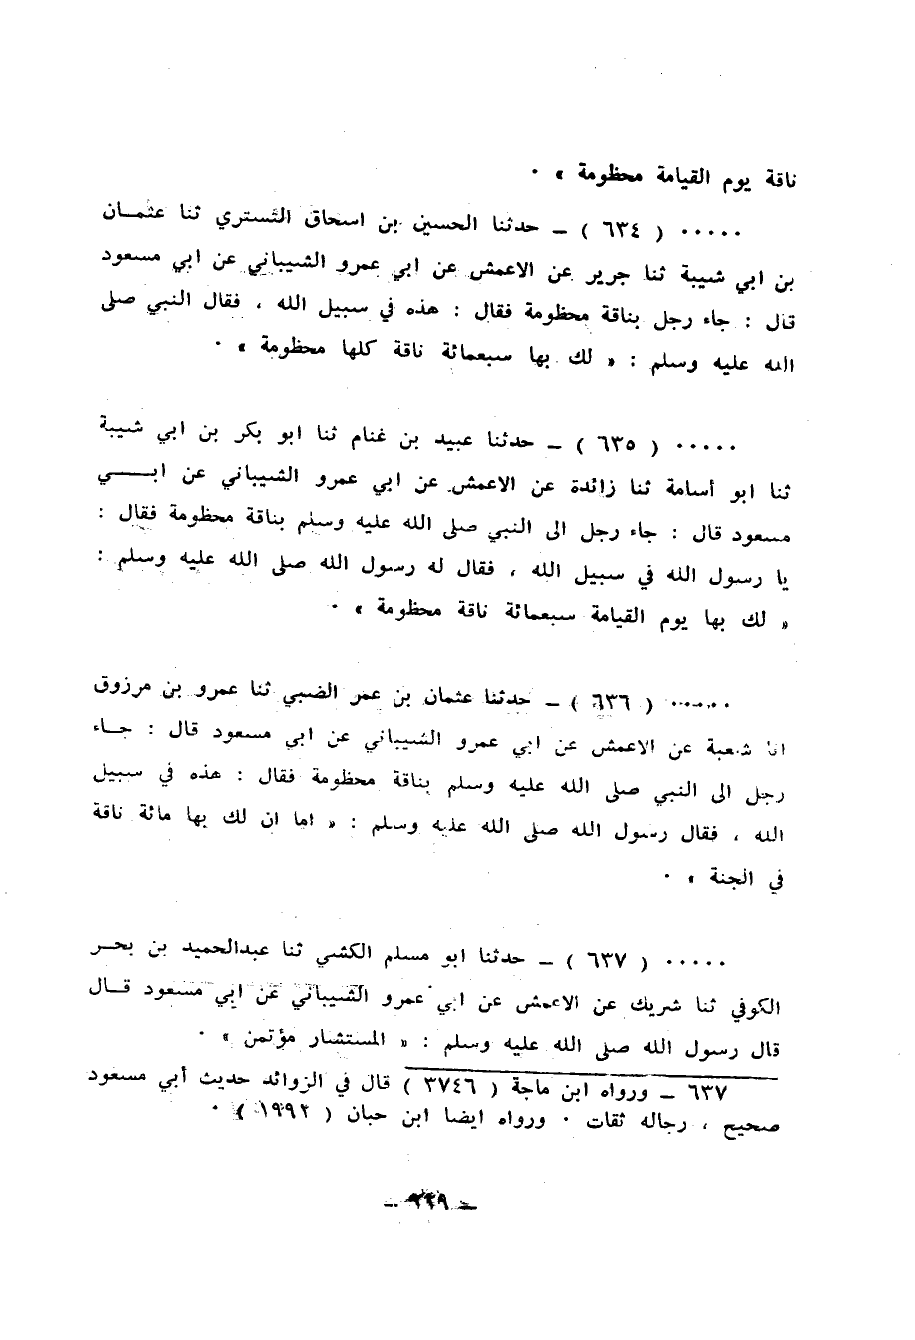 ناقة يوم القيامة محظومة » ٠
٠٠٠٠٠ ( ٦٣٤ ) ــ حدثنا الحسين بن اسحاق التستري ثنا عثمــان
بن ابي شيبة ثنا جرير عن الاعمش عن ابي عمرو الشيباني عن ابي مسعود
قال : جاء رجل بناقة محظومة فقال : هذه في سبيل الله ، فقال النبي صلى
الله عليه وسلم : « لك بها سبعمائة ناقة كلها محظومة » ٠
٠٠٠٠٠ ( ٦٣٥ ) ــ حدثنا عبيد بن غنام ثنا ابو بكر بن ابي شيبة
ثنا ابو أسامة ثنا زائدة عن الاعمش عن ابي عمرو الشيباني عن ابــــي
مسعود قال : جاء رجل الى النبي صلى الله عليه وسلم بناقة محظومة فقال :
يا رسول الله في سبيل الله ، فقال له رسول الله صلى الله عليه وسلم :
« لك بها يوم القيامة سبعمائة ناقة محظومة » ٠
٠٠٠٠٠ ( ٦٣٦ ) ــ حدثنا عثمان بن عمر الضبي ثنا عمرو بن مرزوق
انا شعبة عن الاعمش عن ابي عمرو الشيباني عن ابي مسعود قال : جــاء
رجل الى النبي صلى الله عليه وسلم بناقة محظومة فقال : هذه في سبيل
الله ، فقال رسول الله صلى الله عليه وسلم : « اما ان لك بها مائة ناقة
في الجنة » ٠
٠٠٠٠٠ ( ٦٣٧ ) ــ حدثنا ابو مسلم الكشي ثنا عبدالحميد بن بحــر
الكوفي ثنا شريك عن الاعمش عن ابي عمرو الشيباني عن ابي مسعود قــال
قال رسول الله صلى الله عليه وسلم : « المستشار مؤتمن » ٠
٦٣٧ ــ ورواه ابن ماجة ( ٣٧٤٦ ) قال في الزوائد حديث أبي مسعود
صحيح ، رجاله ثقات ٠ ورواه ايضا ابن حبان ( ١٩٩٢ ) ٠